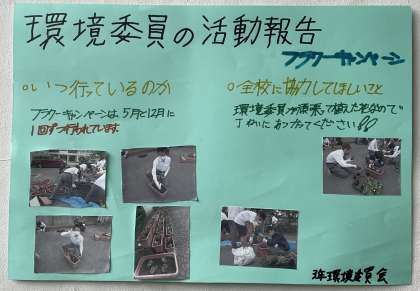 環境委員の活動報告
フラワーキャンペーン
○いつ行っているのか
フラワーキャンペーンは5月と12月に
1回ずつ行われています
○全校に協力してほしいこと
環境委員が頑張って植えた花なので
ていねいにあつかってください
環境委員会